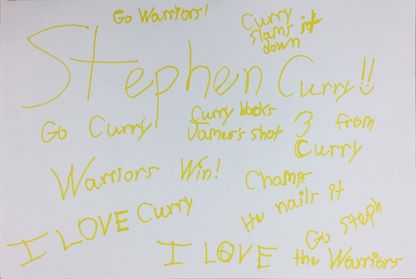 Go Warriors!
Curry
slams it
down
Stephen Curry!!
Go Curry
Curry blocks
James's shot
3 from
Curry
Warriors Win!
Champs
He nails it
I LOVE Curry
I LOVE
the Warriors
Go Steph